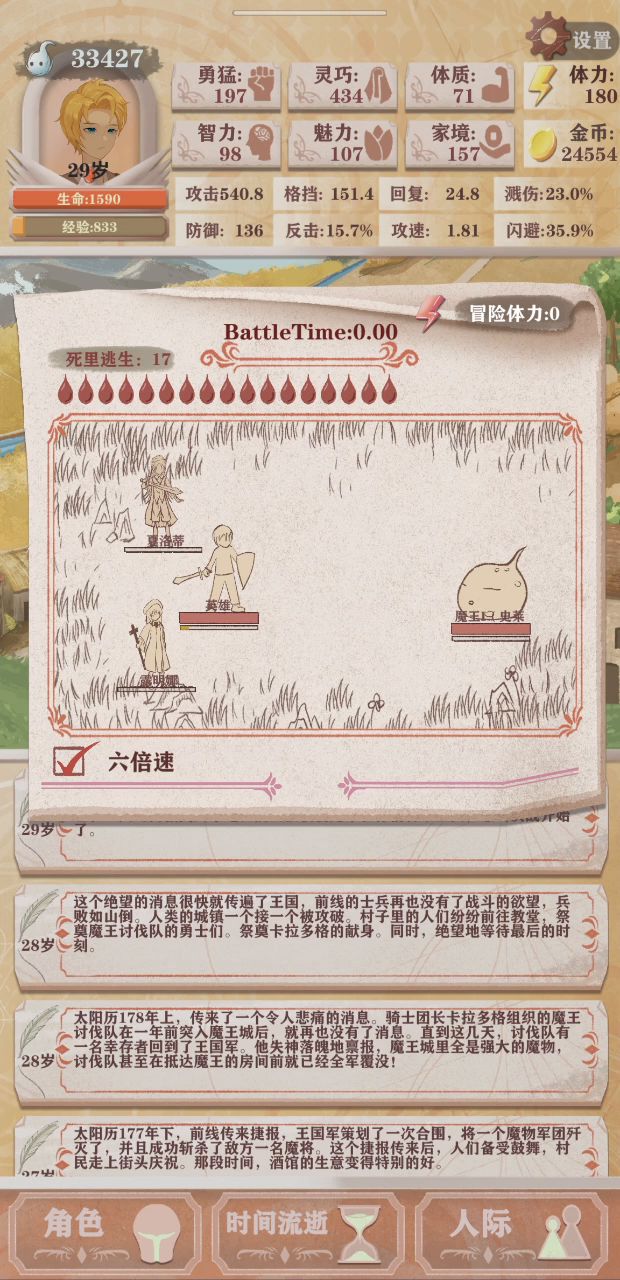 33427
设置
29岁
勇猛:
197
灵巧:
434
体质:
71
体力:
180
智力:
98
魅力:
107
家境:
157
金币:
24554
生命:1590
经验:833
攻击540.8 格挡: 151.4 回复: 24.8 溅伤:23.0%
防御: 136 反击:15.7% 攻速: 1.81 闪避:35.9%
冒险体力:0
BattleTime:0.00
死里逃生: 17
夏洛蒂
英雄
魔王
史莱
六倍速
29岁
了。
28岁
这个绝望的消息很快就传遍了王国，前线的士兵再也没有了战斗的欲望，兵
败如山倒。人类的城镇一个接一个被攻破。村子里的人们纷纷前往教堂，祭
奠魔王讨伐队的勇士们。祭奠卡拉多格的献身。同时，绝望地等待最后的时
刻。
28岁
太阳历178年上，传来了一个令人悲痛的消息。骑士团长卡拉多格组织的魔王
讨伐队在一年前突入魔王城后，就再也没有了消息。直到这几天，讨伐队有
一名幸存者回到了王国军。他失神落魄地禀报，魔王城里全是强大的魔物，
讨伐队甚至在抵达魔王的房间前就已经全军覆没！
27岁
太阳历177年下，前线传来捷报，王国军策划了一次合围，将一个魔物军团歼
灭了，并且成功斩杀了敌方一名魔将。这个捷报传来后，人们备受鼓舞，村
民走上街头庆祝。那段时间，酒馆的生意变得特别的好。
角色
时间流逝
人际